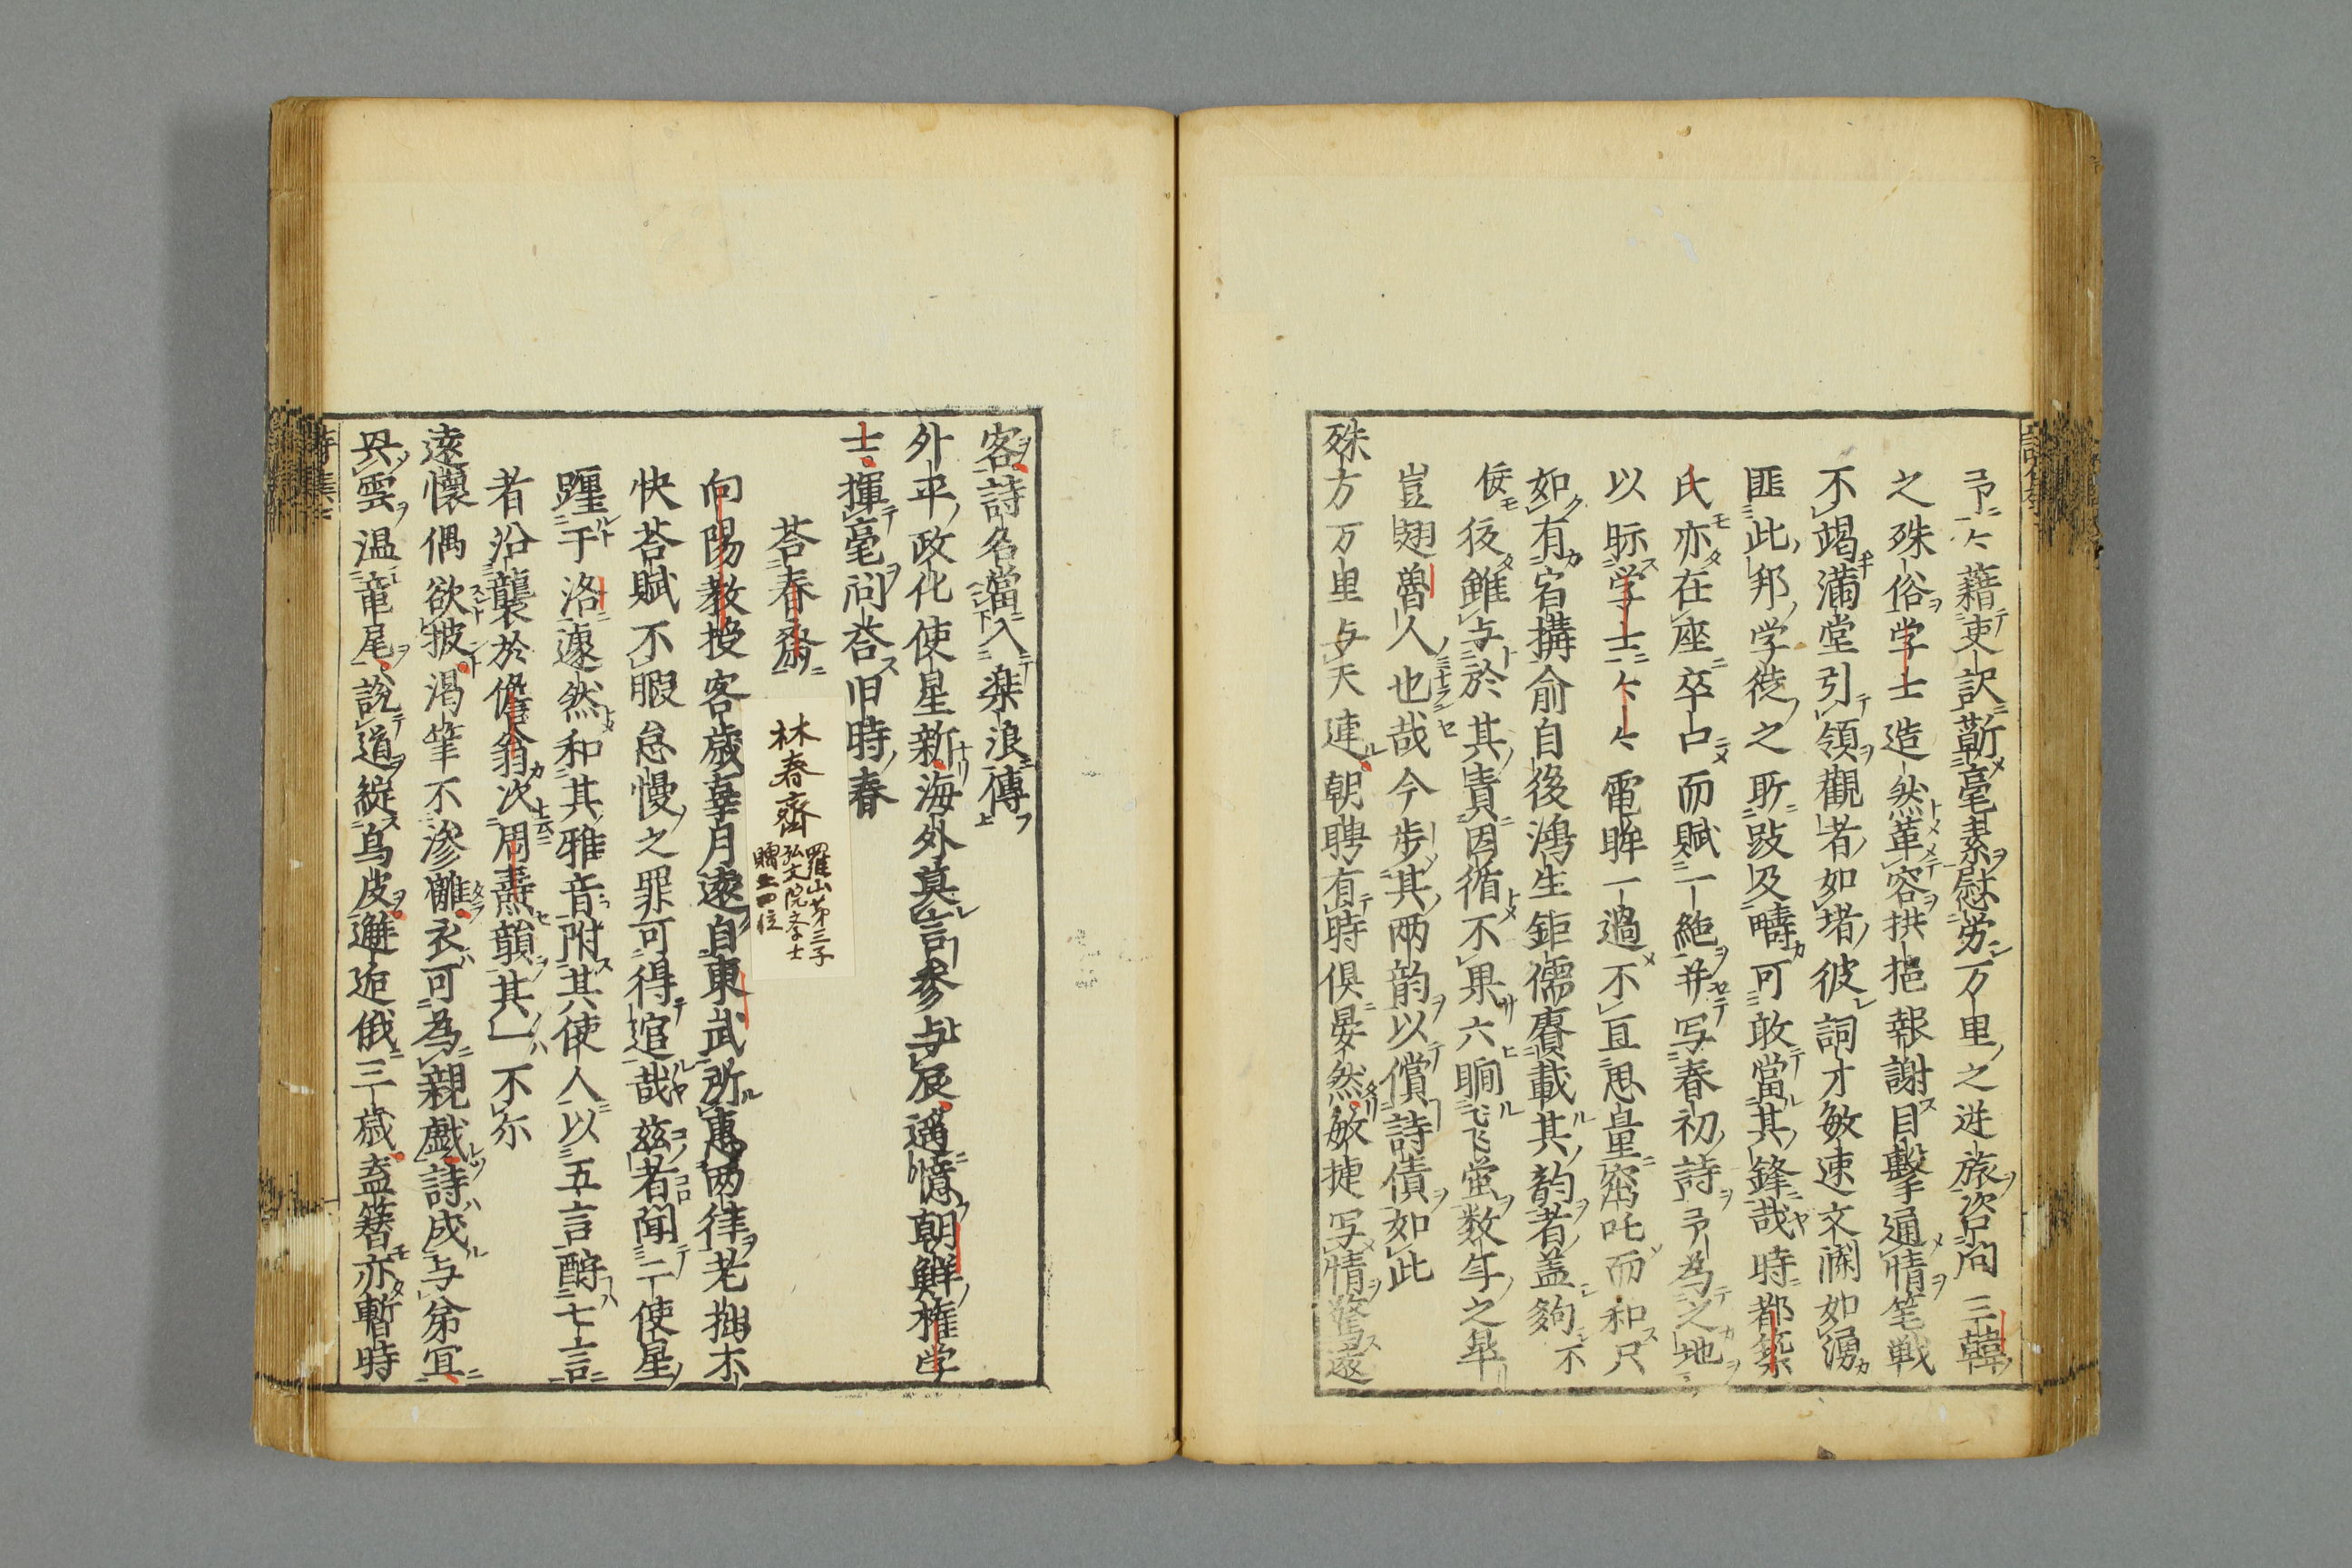 予亽藉吏訳蘄毫素慰労万里之逆旅咨问三韓
之殊俗学士造然革容拱挹報謝目撃通情笔戦
不竭満堂引領觀者如堵彼詞才敏速文瀾如湧
匪此邦学徒之所跂及疇可敢當其鋒哉時都築
氏亦在座卒占而賦一絶并写春初詩予為之地
以眎学士亽電眸一過不直思量窩吒而和尺
如有宿搆俞自後鴻生鉅儒賡載其韵者盖夠不
佞後雖与於其責因循不果六瞷飞蛍数年之畢
豈翅魯人也哉今歩其两韵以償詩債如此
殊方万里与天連朝聘有時倶晏然敏捷写情驚遠
客詩名當入楽浪傳
外平政化使星新海外莫言参与辰遥憶朝鮮権学
士揮毫问荅旧時春
荅春齋
林春齋
羅山第三子
弘文院学士
贈正四位
向陽教授客歳辜月遠自東武所惠两律老拙不
快荅賦不暇怠慢之罪可得逭哉兹者聞二使星
躔于洛遽然和其雅音附其使人以五言酧七言
者沿襲於儋翁次周燾韻其一不尓
遠懷偶欲披渇筆不滲離衣可為親戯詩成与弟冝
共雲温竜尾説道綻烏皮邂逅俄三歳盍簪亦暫時
詩集二